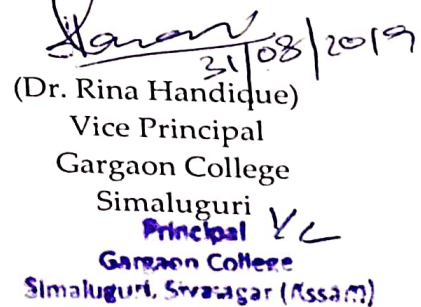 31/08/2019
(Dr. Rina Handique)
Vice Principal
Gargaon College
Simaluguri
Principal
Gargaon College
Simaluguri, Sivasagar (Assam)